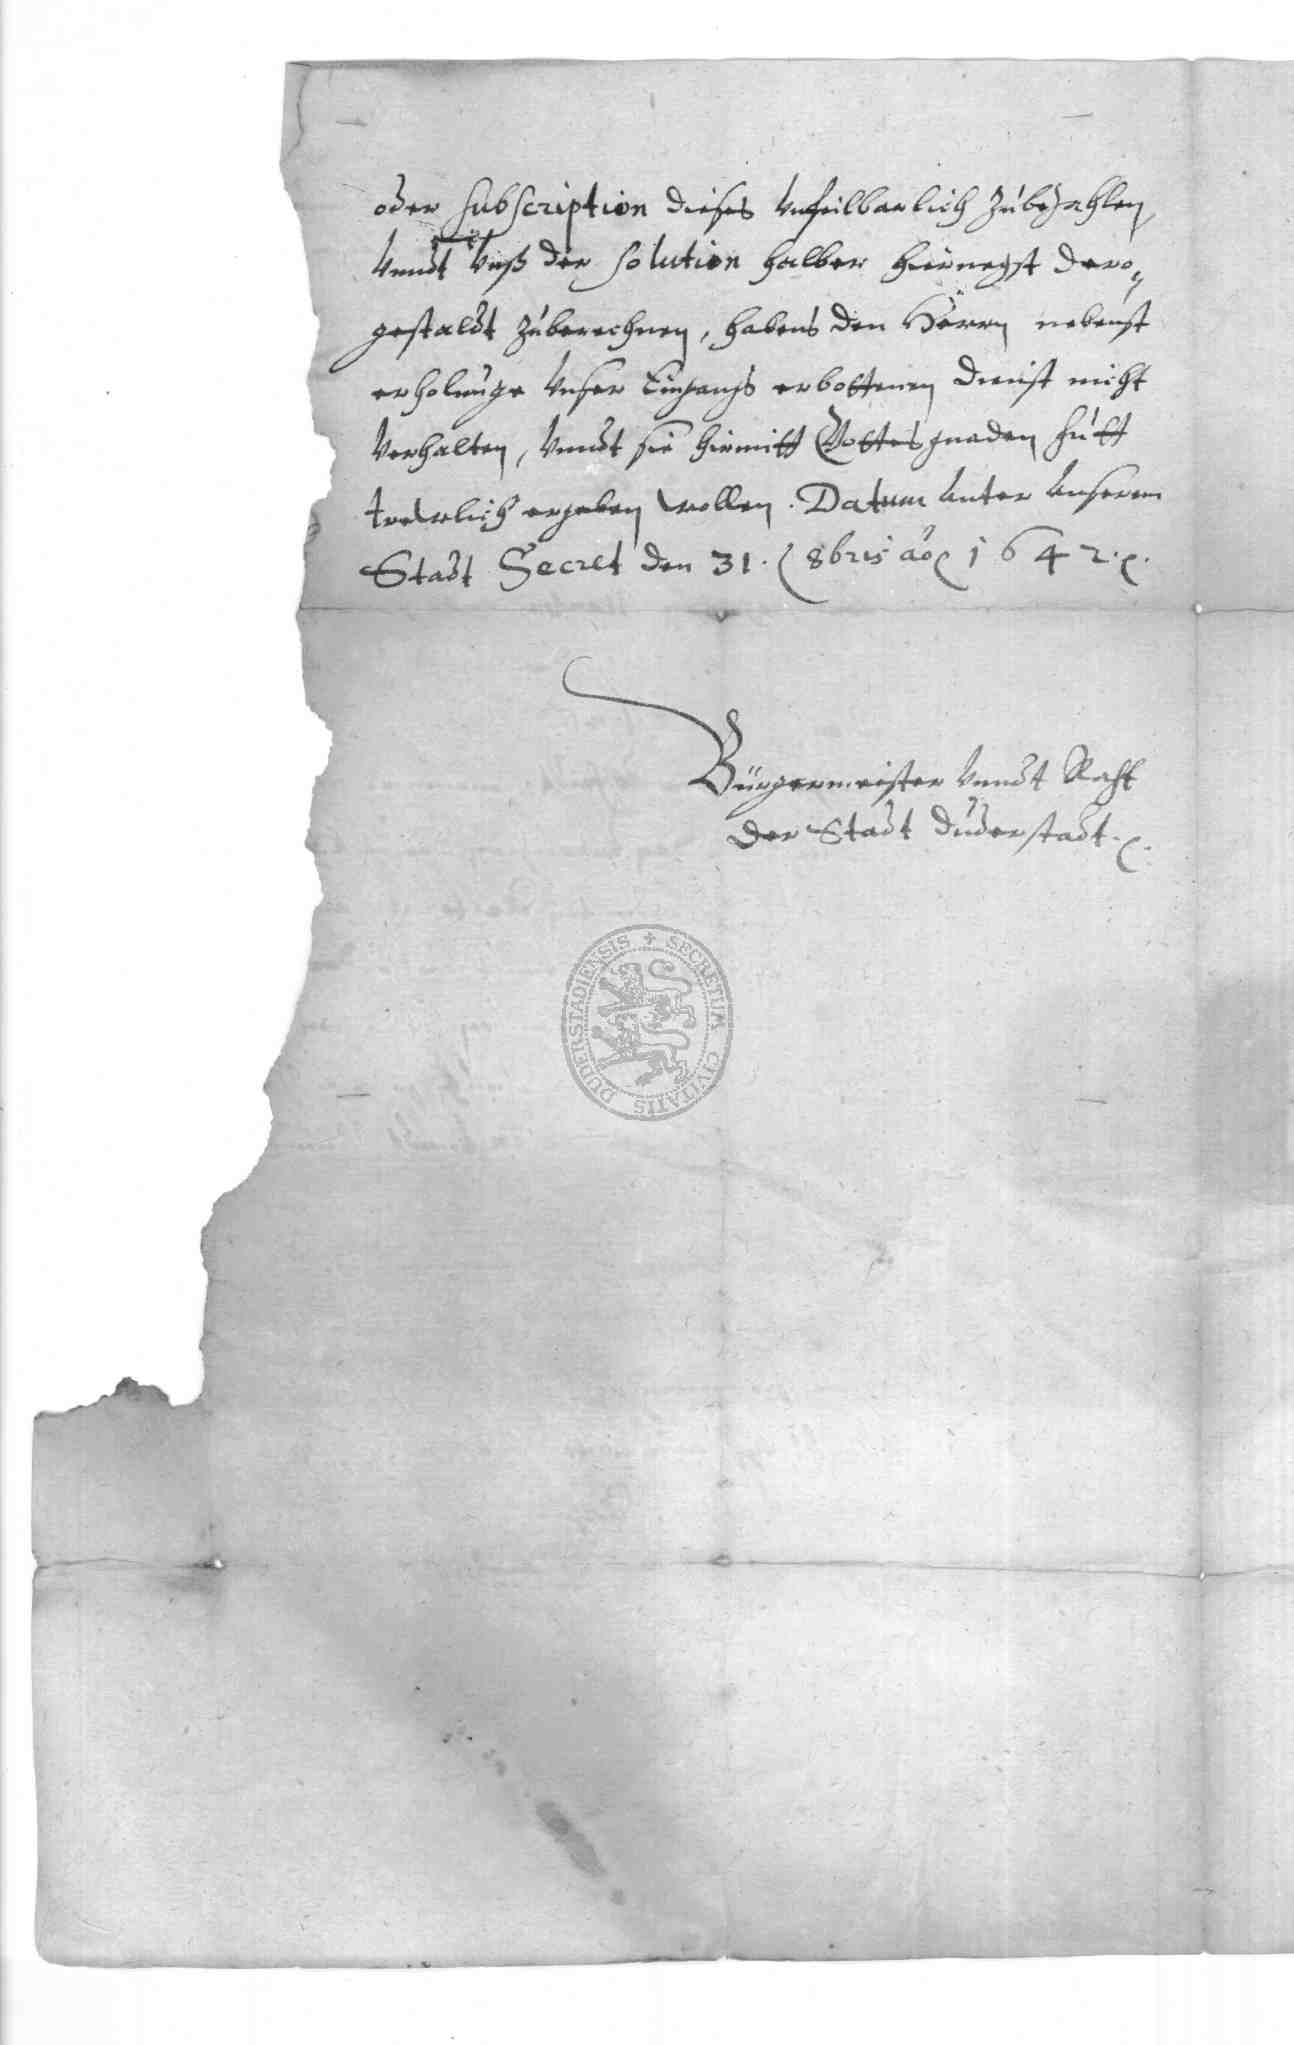 oder subscription dieses unfeilbarlich zubezahlen,
Vundt Unß der solution halber hiernegst dero,
gestaldt zuberechnen, habens den Herrn nebenst
erholunge Unser Eingangs erbottenen Dienst nicht
Verhalten, Vundt sie hirmitt Gottes gnaden hutt
trewlich ergeben wollen. Datum Unter Unserem
Stadt Secret den 31. 8bris ao 1642.
Bürgermeister Vundt Raht
der Stadt Duderstadt.
SECRETUM CIVITATIS DUDERSTADIENSIS